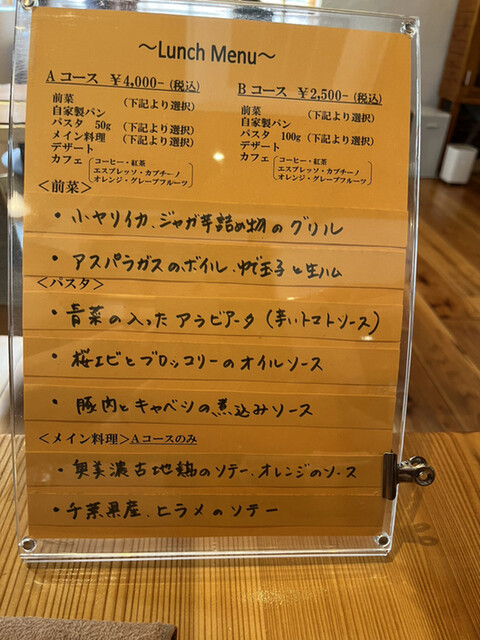 ～Lunch Menu～
A コース ￥4,000-(税込)
前菜 (下記より選択)
自家製パン
パスタ 50g (下記より選択)
メイン料理 (下記より選択)
デザート
カフェ (コーヒー・紅茶
エスプレッソ・カプチーノ
オレンジ・グレープフルーツ)
B コース ￥2,500-(税込)
前菜 (下記より選択)
自家製パン
パスタ 100g (下記より選択)
デザート
カフェ (コーヒー・紅茶
エスプレッソ・カプチーノ
オレンジ・グレープフルーツ)
<前菜>
・小ヤリイカ、ジャガ芋詰め物のグリル
・アスパラガスのボイル、ゆで玉子と生ハム
<パスタ>
・青菜の入ったアラビアータ(辛いトマトソース)
・桜エビとブロッコリーのオイルソース
・豚肉とキャベツの煮込みソース
<メイン料理>Aコースのみ
・奥美濃古地鶏のソテー、オレンジのソース
・千葉県産、ヒラメのソテー